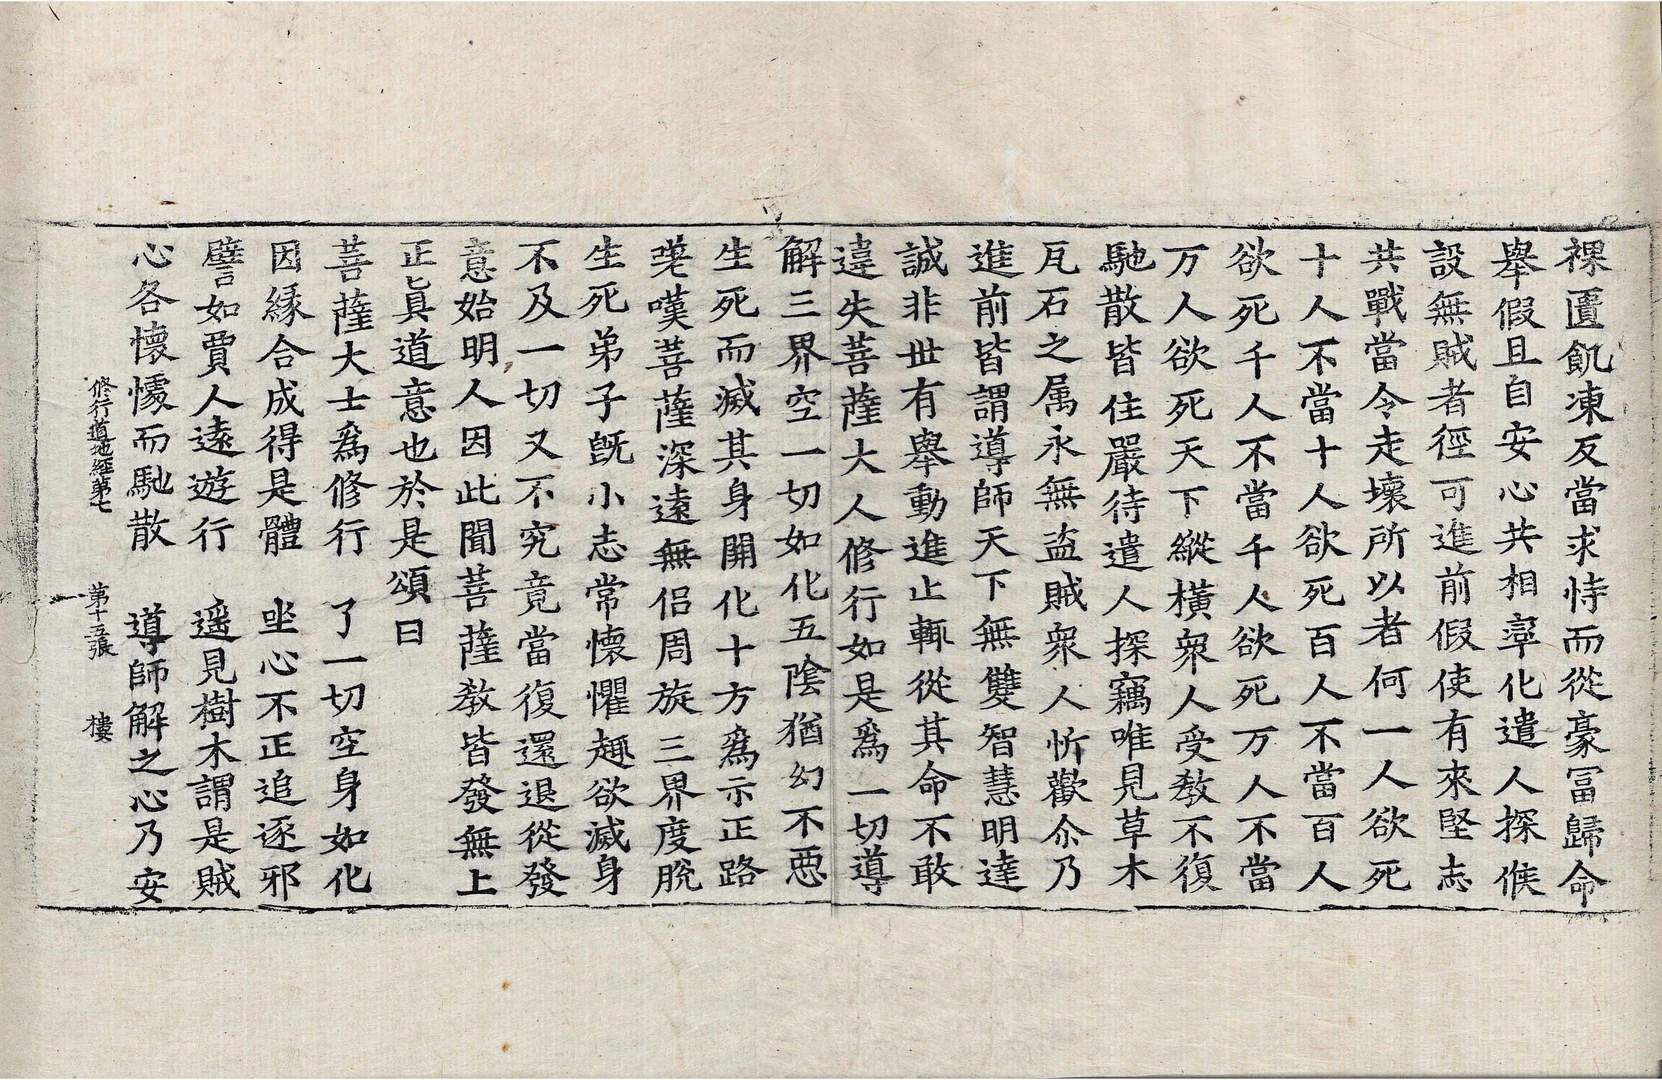 裸匱飢凍反當求恃而從豪冨歸命
舉假且自安心共相率化遣人探候
設無賊者徑可進前假使有來堅志
共戰當令走壞所以者何一人欲死
十人不當十人欲死百人不當百人
欲死千人不當千人欲死万人不當
万人欲死天下縱橫衆人受教不復
馳散皆住嚴待遣人探竊唯見草木
瓦石之属永無盜賊衆人忻歡尒乃
進前皆謂導師天下無雙智慧明達
誠非世有舉動進止輒從其命不敢
違失菩薩大人修行如是爲一切導
解三界空一切如化五陰猶幻不惡
生死而滅其身開化十方爲示正路
嗟嘆菩薩深遠無侣周旋三界度脫
生死弟子旣小志常懷懼趣欲滅身
不及一切又不究竟當復還退從發
意始明人因此聞菩薩教皆發無上
正眞道意也於是頌曰
菩薩大士爲修行　了一切空身如化
因緣合成得是體　坐心不正追逐邪
譬如賈人遠遊行　遥見樹木謂是賊
心各懷懅而馳散　導師解之心乃安
修行道地經第七　第十五張　樓